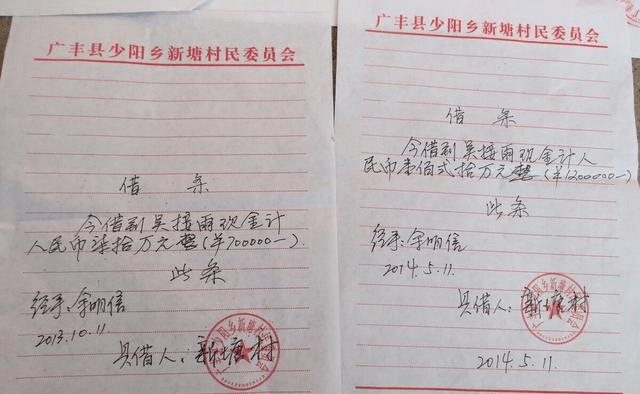 广丰县少阳乡新塘村民委员会
借 条
今借到吴接雨现金计
人民币柒拾万元整(¥700000-).
此条
经手:余明信
2013.10.11.
具借人:新塘村
广丰县少阳乡新塘村民委员会
借 条
今借到吴接雨现金计人
民币壹佰弍拾万元整(¥1200000-)
此条
经手:余明信
2014.5.11.
具借人:新塘村
2014.5.11.